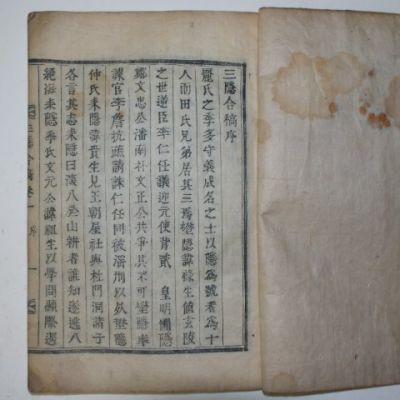 三隱合稿序
麗氏之季多守義成名之士以隱爲號者爲十
人而田氏兄弟居其三焉壄隱諱祿生値玄陵
之世逆臣李仁任議迎元使背貳 皇明壄隱
鄭文忠公潘南朴文正公共爭其不可壄隱
諫官李詹抗疏請誅仁任同被淄刑以歿壄隱
仲氏耒隱諱貴生見王朝屋社與杜門洞諸子
各言其志耒隱曰淡八荒山耕者誰知遂逃入
絶海耒隱季氏文元公諱祖生以學問顯際遇
三隱合稿卷一 序 一